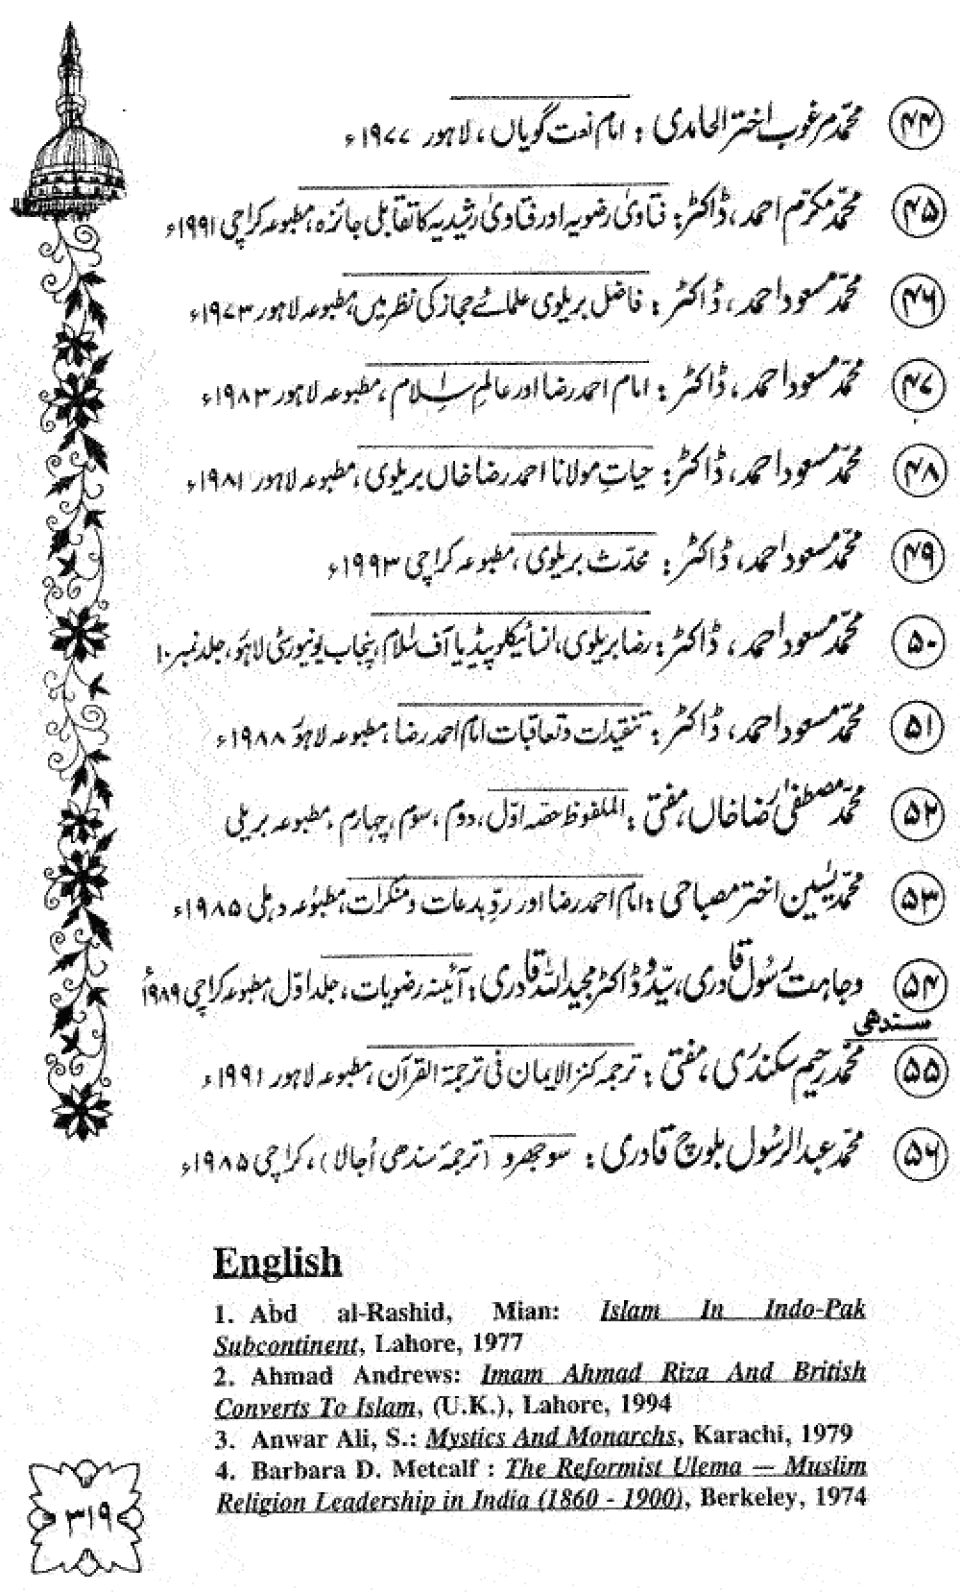 ۴۴ محمّد مرغوب اختر الحامدی : امام نعت گویاں، لاہور ۱۹۷۷ء
۴۵ محمّد مکرّم احمد، ڈاکٹر: فتاویٰ رضویہ اور فتاویٰ رشیدیہ کا تقابلی جائزہ، مطبوعہ کراچی ۱۹۹۱ء
۴۶ محمّد مسعود احمد، ڈاکٹر : فاضل بریلوی علمائے حجاز کی نظر میں، مطبوعہ لاہور ۱۹۷۳ء
۴۷ محمّد مسعود احمد، ڈاکٹر : امام احمد رضا اور عالمِ اسلام، مطبوعہ لاہور ۱۹۸۳ء
۴۸ محمّد مسعود احمد، ڈاکٹر: حیاتِ مولانا احمد رضا خاں بریلوی، مطبوعہ لاہور ۱۹۸۱ء
۴۹ محمّد مسعود احمد، ڈاکٹر : محدّث بریلوی، مطبوعہ کراچی ۱۹۹۳ء
۵۰ محمّد مسعود احمد، ڈاکٹر: رضا بریلوی، انسائیکلوپیڈیا آف اسلام، پنجاب یونیورسٹی لاہور، جلد نمبر ۱۰
۵۱ محمّد مسعود احمد، ڈاکٹر: تنقیدات و تعاقبات امام احمد رضا، مطبوعہ لاہور ۱۹۸۸ء
۵۲ محمّد مصطفیٰ رضا خاں، مفتی : الملفوظ حصّہ اوّل، دوم، سوم، چہارم، مطبوعہ بریلی
۵۳ محمّد یٰسین اختر مصباحی : امام احمد رضا اور ردِّ بدعات و منکرات، مطبوعہ دہلی ۱۹۸۵ء
۵۴ وجاہت رسول قادری، سیّد و ڈاکٹر مجید اللہ قادری: آئینہ رضویات، جلد اوّل، مطبوعہ کراچی ۱۹۸۹ء
سندھی
۵۵ محمّد رحیم سکندری، مفتی : ترجمہ کنز الایمان فی ترجمۃ القرآن، مطبوعہ لاہور ۱۹۹۱ء
۵۶ محمّد عبدالرسول بلوچ قادری : سوجھرو (ترجمۂ سندھی اُجالا)، کراچی ۱۹۸۵ء
English
1. Abd al-Rashid, Mian: Islam In Indo-Pak
Subcontinent, Lahore, 1977
2. Ahmad Andrews: Imam Ahmad Riza And British
Converts To Islam, (U.K.), Lahore, 1994
3. Anwar Ali, S.: Mystics And Monarchs, Karachi, 1979
4. Barbara D. Metcalf : The Reformist Ulema — Muslim
Religion Leadership in India (1860 - 1900), Berkeley, 1974
۳۱۹